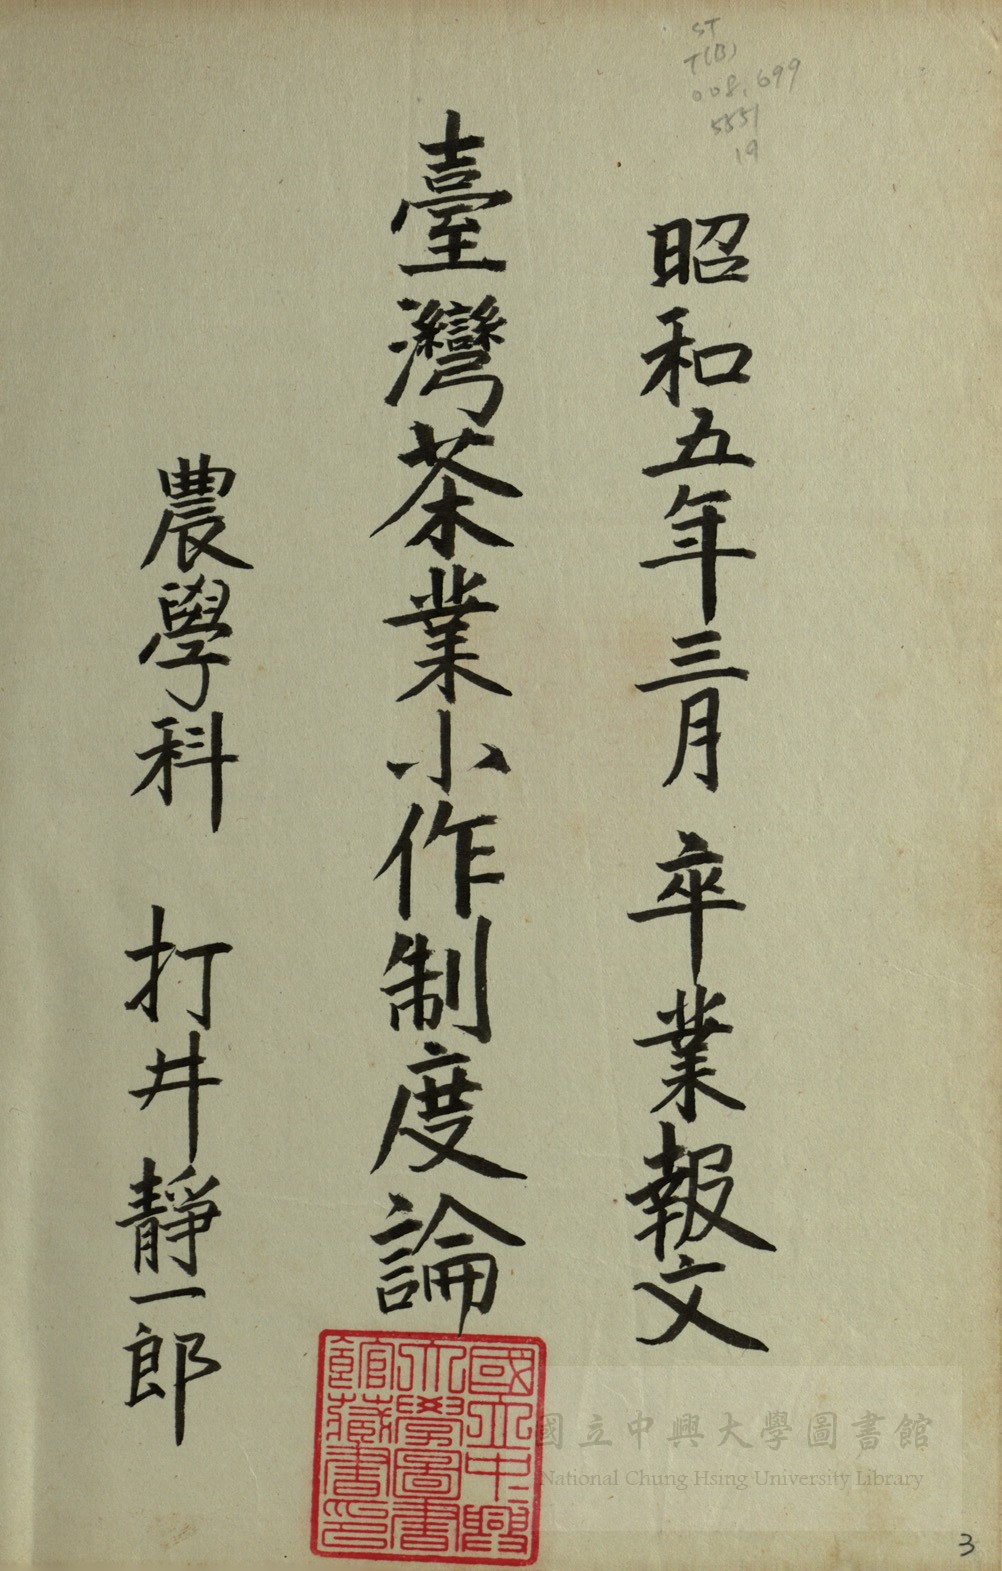 ST
T(B)
008.699
5551
19
昭和五年三月 卒業報文
臺灣茶業小作制度論
農學科 打井靜一郎
國立中興
大學圖書
館藏書印
國立中興大學圖書館
National Chung Hsing University Library
3